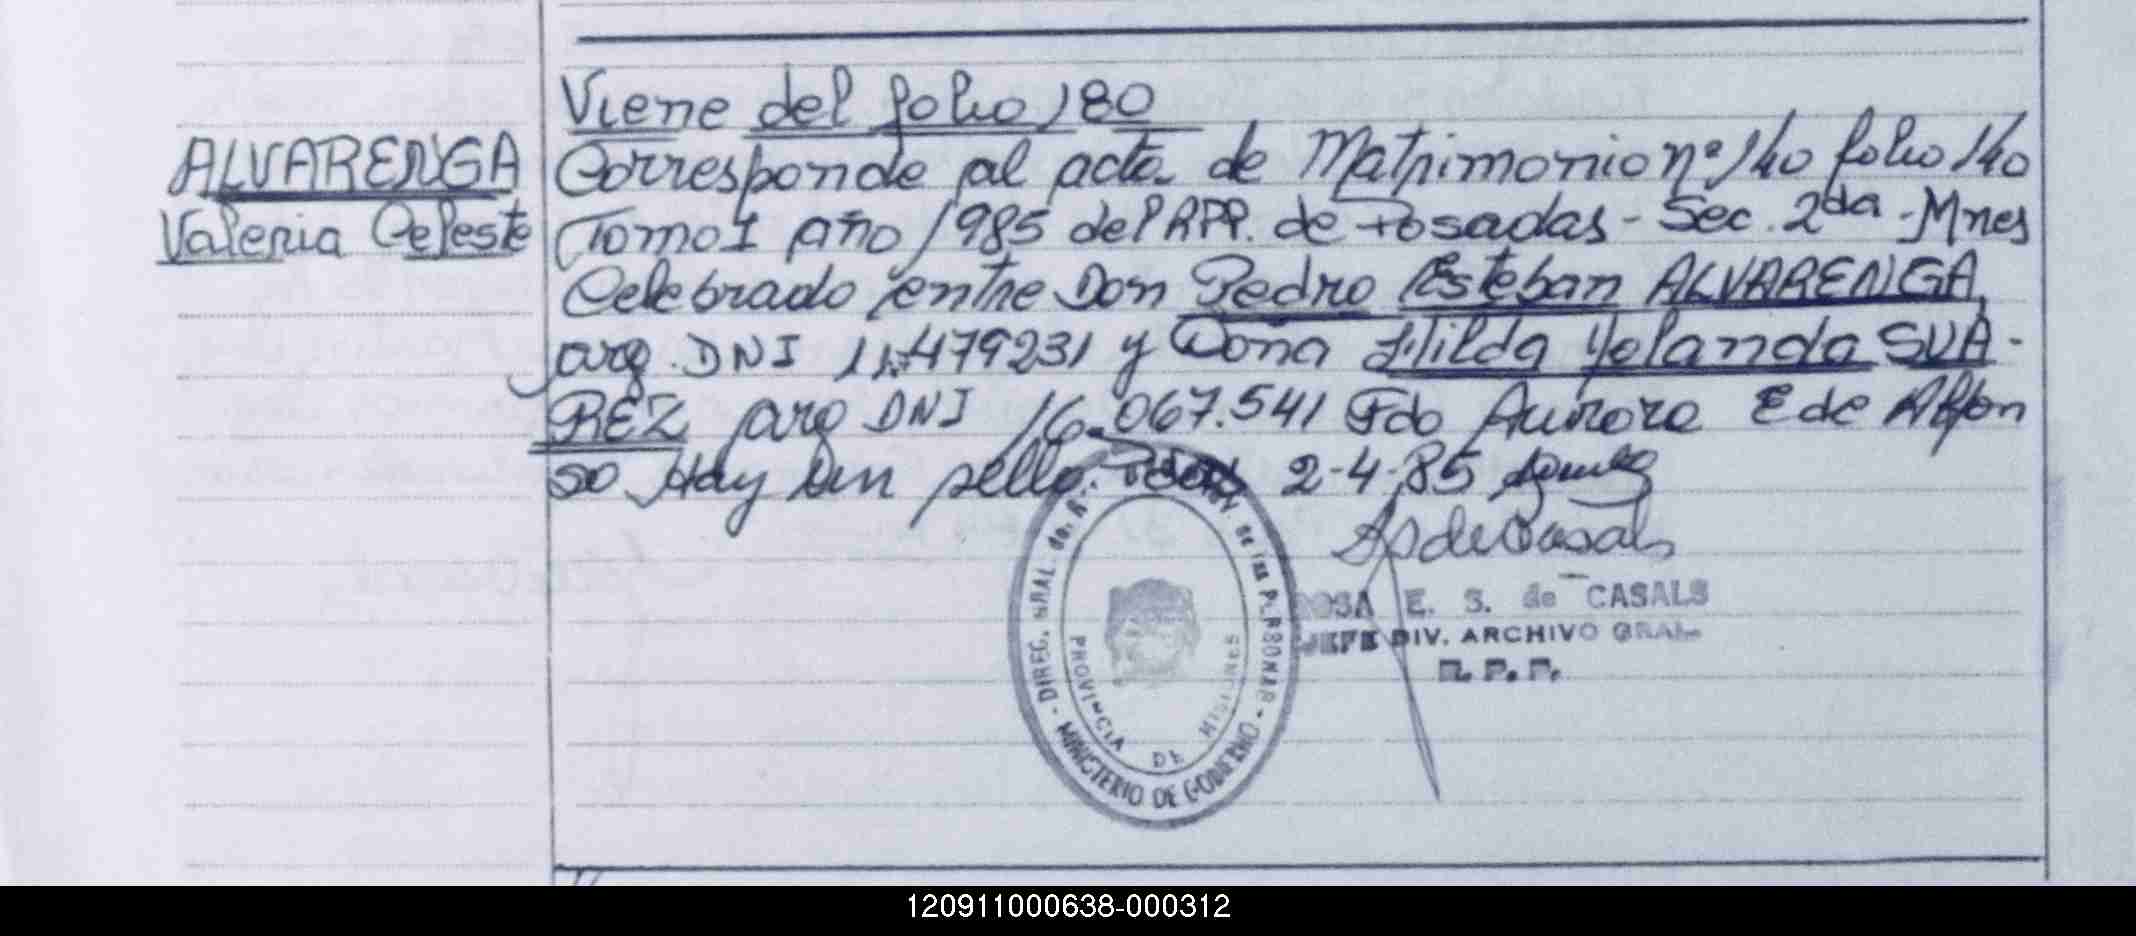 Viene del folio 180
ALVARENGA
Valeria Celeste
Corresponde al acta de Matrimonio nº 140 folio 140
Tomo I año 1985 del RPP. de Posadas - Sec. 2da - Mnes
Celebrado entre Don Pedro Esteban ALVARENGA
arg. DNI 11.479231 y Doña Hilda Yolanda SUA-
REZ arg DNI 16.067.541 Fdo Aurora E de Alfon
so Hay un sello. 2-4-85
S de Casals
ROSA E. S. de CASALS
JEFE DIV. ARCHIVO GRAL.
R. P. P.
DIREC. GRAL. de las PERSONAS
MINISTERIO DE GOBIERNO
PROVINCIA DE MISIONES
120911000638-000312